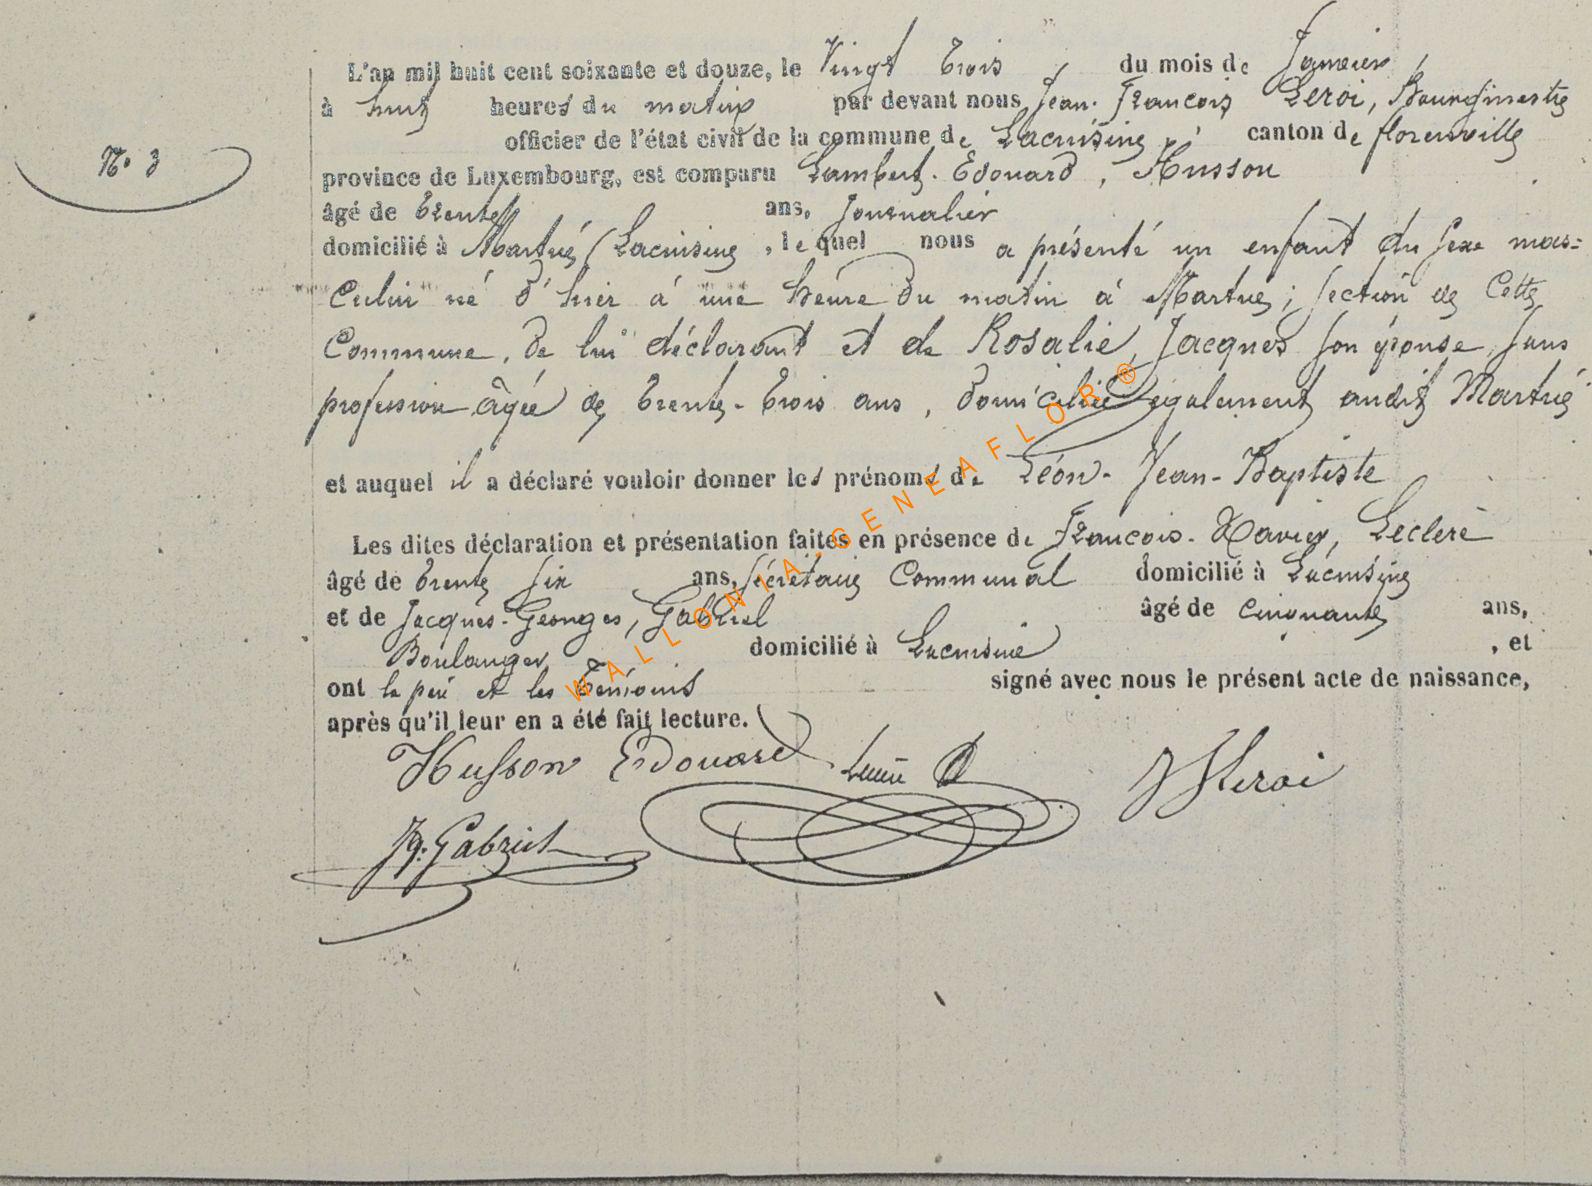 L'an mil huit cent soixante et douze, le Vingt Trois du mois de Janvier,
à huit heures du matin par devant nous Jean-François Leroi, Bourgmestre
officier de l'état civil de la commune de Lacuisine, canton de florenville
N° 3
province de Luxembourg, est comparu Lambert-Edouard, Husson
âgé de trente ans, Journalier
domicilié à Martué, (Lacuisine, lequel nous a présenté un enfant du sexe mas=
culin né d'hier à une heure du matin à Martué; section de Cette
Commune, de lui déclarant et de Rosalie, Jacques son épouse, sans
profession âgée de trente-trois ans, domiciliée également audit Martué
et auquel il a déclaré vouloir donner les prénoms de Léon-Jean-Baptiste
Les dites déclaration et présentation faites en présence de François-Xavier, Leclere
âgé de trente six ans, Sécrétaire Communal domicilié à Lacuisine
et de Jacques-Georges, Gabriel âgé de cinquante ans,
Boulanger domicilié à Lacuisine, et
ont le père et les témoins signé avec nous le présent acte de naissance,
après qu'il leur en a été fait lecture.
Husson Edouard JFLeroi
JG. Gabriel
WALLONIA-GENEAFLOR®